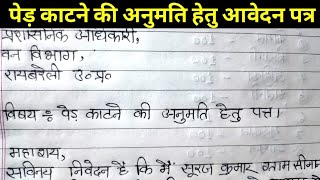 पेड़ काटने की अनुमति हेतु आवेदन पत्र
प्रशासनिक अधिकारी,
वन विभाग,
रायबरेली उ०प्र०
विषय : पेड़ काटने की अनुमति हेतु पत्र।
महाशय,
सविनय निवेदन है कि मैं सूरज कुमार ग्राम